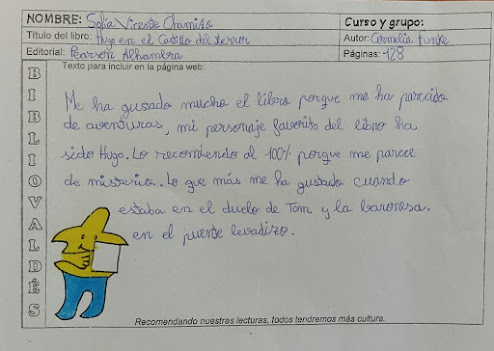 NOMBRE: Sofía Vicente Charnizo
Curso y grupo:
Título del libro: Hugo en el Castillo del terror
Autor: Cornelia Funke
Editorial: Pearson Alhambra
Páginas: 128
BIBLIOVALDÉS
Texto para incluir en la página web:
Me ha gustado mucho el libro porque me ha parecido
de aventuras, mi personaje favorito del libro ha
sido Hugo. Lo recomiendo al 100% porque me parece
de misterio. Lo que más me ha gustado cuando
estaba en el duelo de Tom y la baronesa.
en el puente levadizo.
Recomendando nuestras lecturas, todos tendremos más cultura.